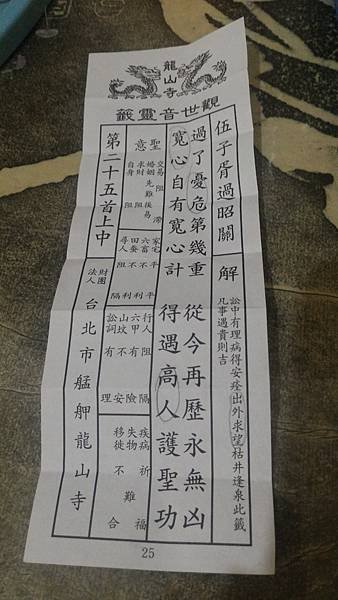 龍山寺
觀世音靈籤
伍子胥過昭關
解
訟中有理病得安痊出外求望枯井逢泉此籤
凡事遇貴則吉
過了憂危第幾重
從今再歷永無凶
寬心自有寬心計
得遇高人護聖功
聖意
交易 阻滯
婚姻 先難後易
求財 阻
自身 阻
家宅 不平
六畜 不利
田蠶 不利
尋人 阻隔
行人 阻隔
六甲 有險
山墳 不安
訟詞 有理
疾病 祈福
失物 難
移徙 不合
第二十五首上中
財團
法人
台北市艋舺龍山寺
25